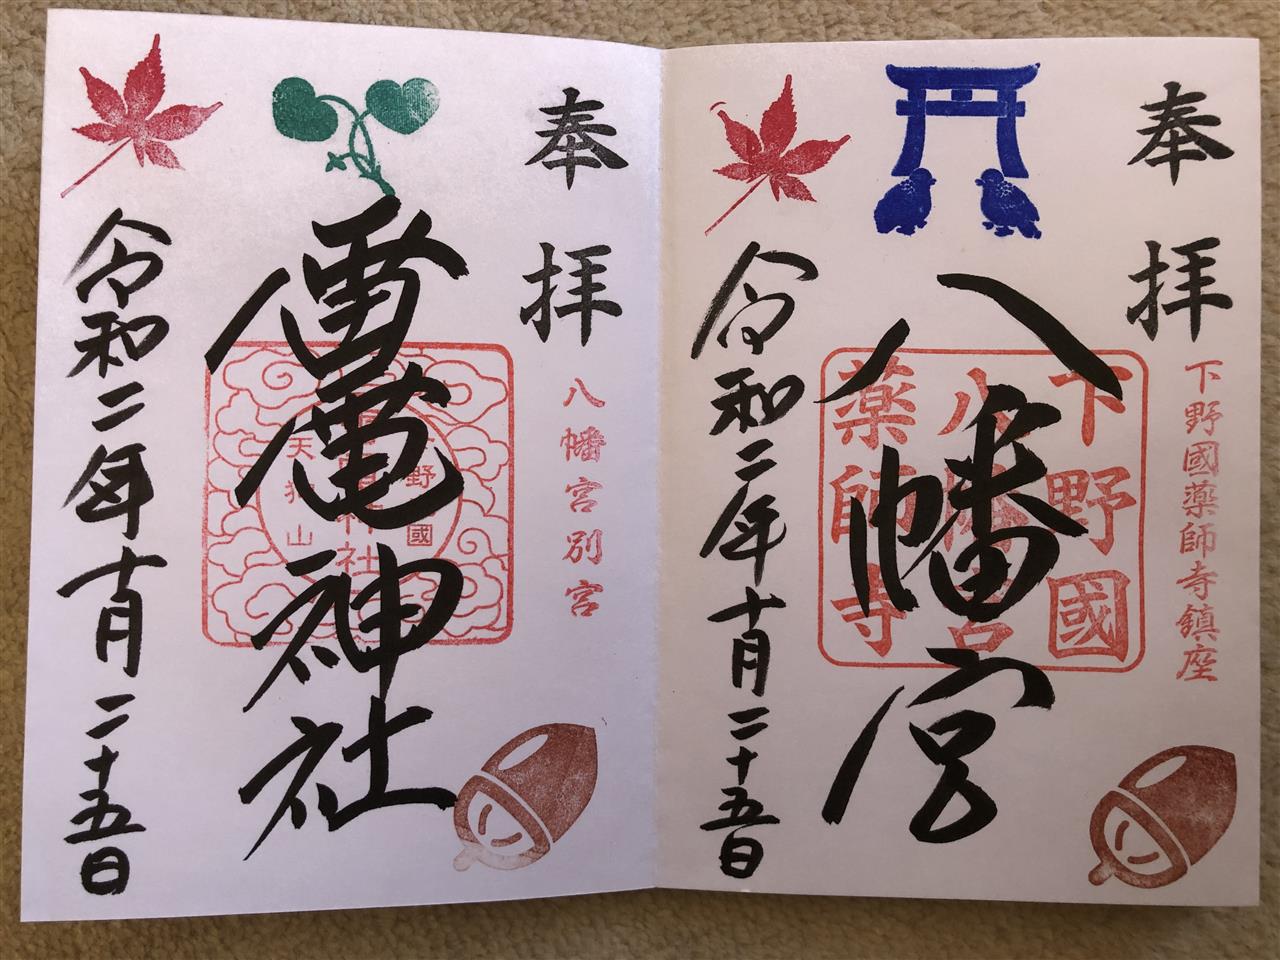 奉拝
下野國薬師寺鎮座
八幡宮
下野國
八幡宮
薬師寺
令和二年十月二十五日
奉拝
八幡宮別宮
雷電神社
野國
神社
天狗山
令和二年十月二十五日